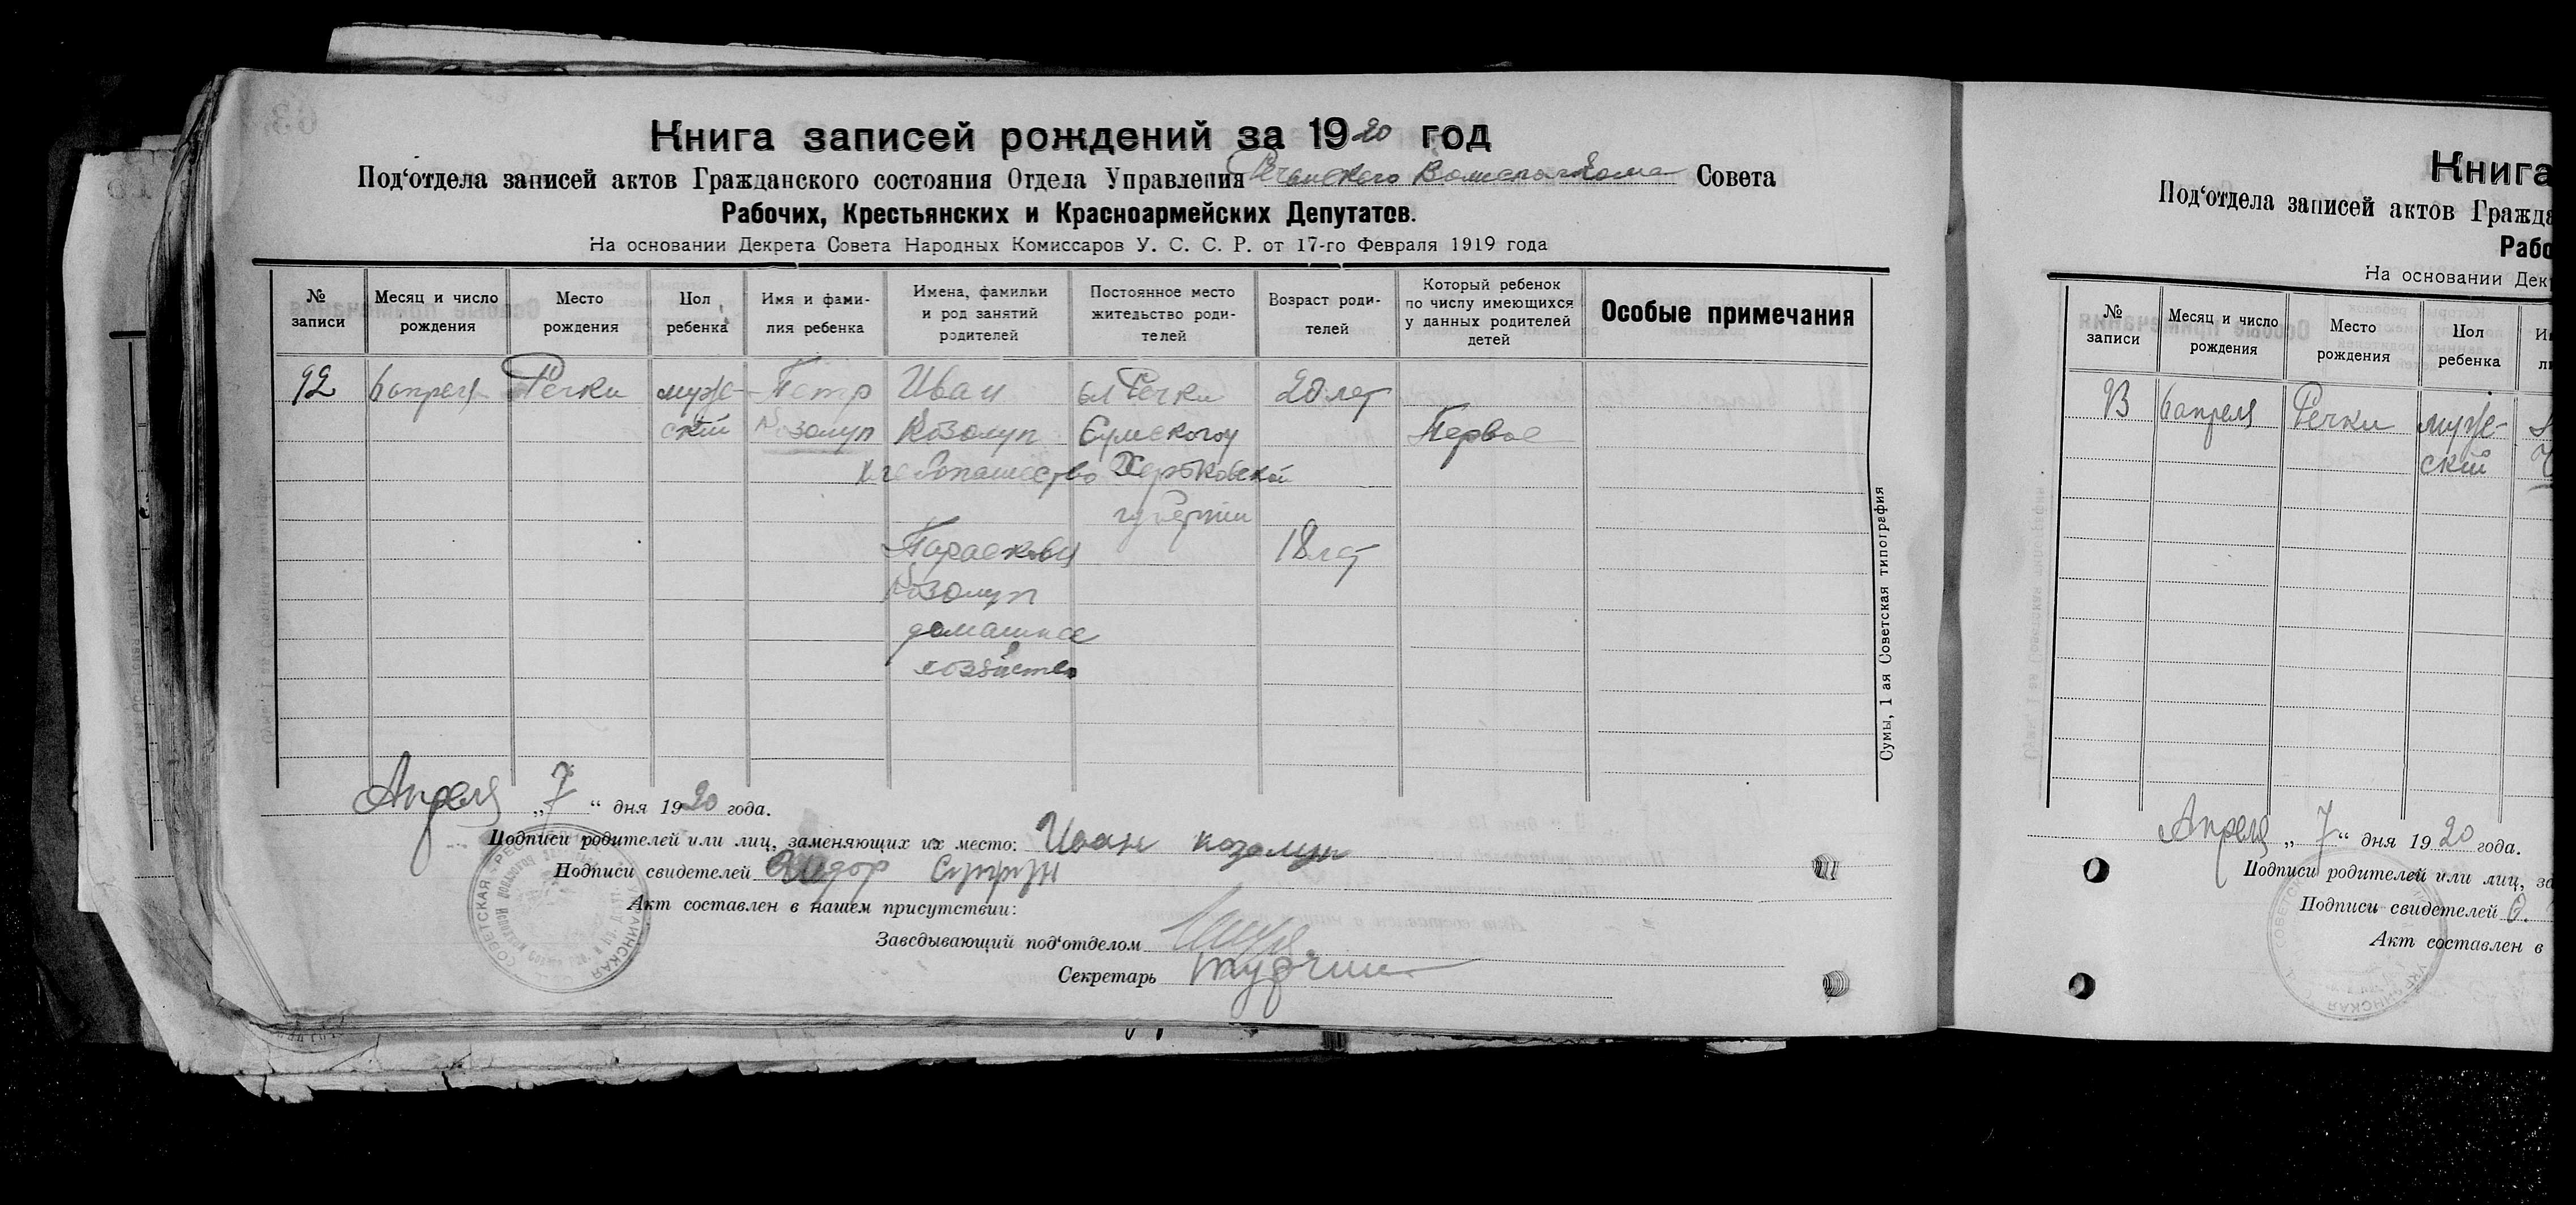 Книга записей рождений за 1920 год
Под‘отдела записей актов Гражданского состояния Отдела Управления Речанского Волисполкома Совета
Рабочих, Крестьянских и Красноармейских Депутатов.
На основании Декрета Совета Народных Комиссаров У. С. С. Р. от 17-го Февраля 1919 года
№ записи
Месяц и число рождения
Место рождения
Пол ребенка
Имя и фами-
лия ребенка
Имена, фамилии
и род занятий
родителей
Постоянное место
жительство роди-
телей
Возраст роди-
телей
Который ребенок
по числу имеющихся
у данных родителей
детей
Особые примечания
92
6 апреля
Речки
муже-
ский
Петр
Козолуп
Иван
Козолуп
хлебопашество
Параскевья
Козолуп
домашнее
хозяйство
сл Речки
Сумского у
Харьковской
губернии
20 лет
18 лет
Первое
Сумы, 1 ая Советская типография
Апреля „7“ дня 1920 года.
Подписи родителей или лиц, заменяющих их место: Иван козолуп
Подписи свидетелей
Акт составлен в нашем присутствии:
Заведывающий под‘отделом
Секретарь
Книга
Под‘отдела записей актов Гражда
Рабо
На основании Дек
№ записи
Месяц и число рождения
Место рождения
Пол ребенка
93
6 апреля
Речки
муже-
ский
Апреля „7“ дня 1920 года.
Подписи родителей или лиц, за
Подписи свидетелей
Акт составлен в